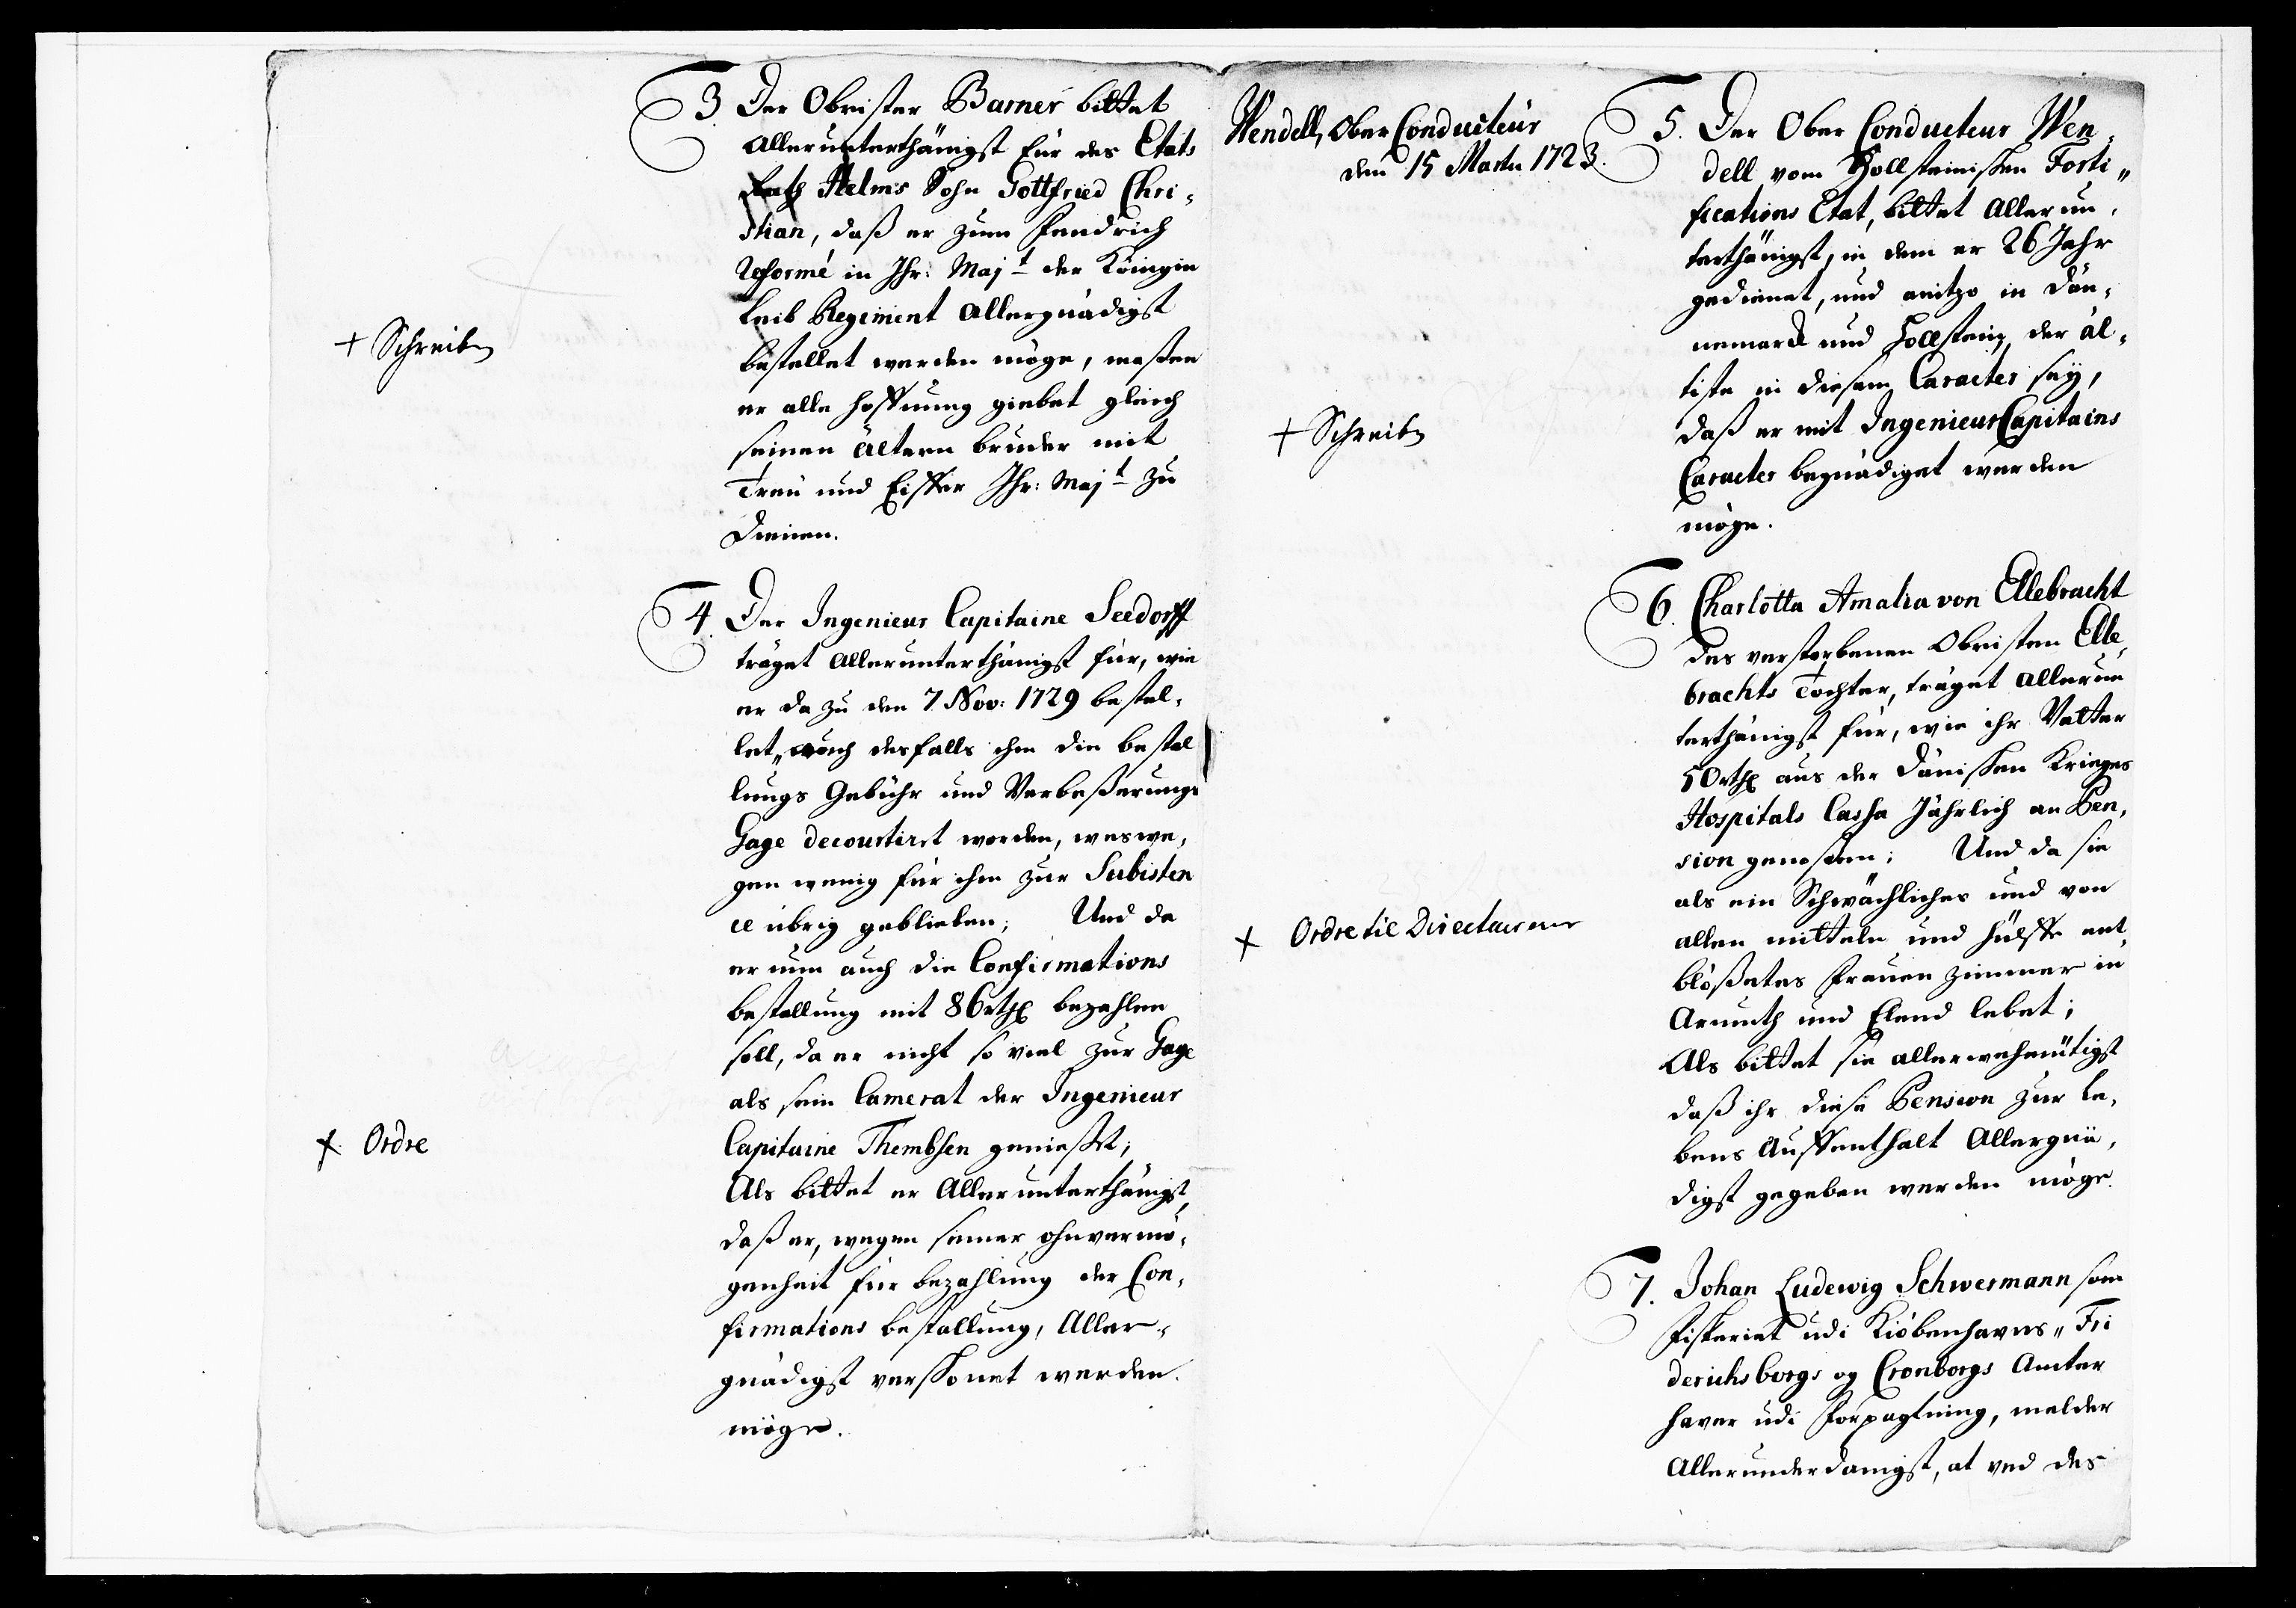 3. Der Obrister Barner bittet
allerunterthänigst für des Etats
Rath Helms Sohn Gottfried Chri-
stian, daß er zum Fendrich
Reformé in Ihr: Majt der Königin
Leib Regiment allergnädigst
bestellet werden möge, maßen
er alle hoffnung giebet gleich
seinen ältern bruder mit
Treu und Eiffer Ihr: Majt zu
Dienen.
+ Schreiben
4. Der Ingenieur Capitaine Seedorff
träget allerunterthänigst für, wie
er da zu den 7 Nov: 1729 bestel-
let, auch desfalls ihm die bestal
lungs Gebühr und Verbeßerungs
Gage decourtiret worden, weswe-
gen wenig für ihm zur Subisten
ce übrig geblieben; Und da
er nun auch die Confirmations
bestallung mit 86 rthl bezahlen
soll, da er nicht so viel zur Gage
als sein Camerat der Ingenieur
Capitaine Thembsen genießet;
Als bittet er Allerunterthänigst,
daß er, wegen seiner ohnvermö-
genheit für bezahlung der Con-
firmations bestallung, Aller-
gnädigst verschonet werden
möge.
+ Ordre
Wendell, Ober Conducteur
den 15 Martii 1723.
5. Der Ober Conducteur Wen-
dell vom Hollsteinischen Forti„
fications Etat, bittet allerun-
terthänigst, in dem er 26 Jahr
gedienet, und anitzo in Dän-
nemarck und Hollstein, der äl-
tiste in diesem Caracter seÿ,
daß er mit Ingenieur Capitains
Caracter begnädiget werden
möge.
+ Schreiben
6. Charlotta Amalia von Ellebracht
des verstorbenen Obristen Elle-
brachts Tochter, träget allerun
terthänigst für, wie ihr Vatter
50 rthl aus der Dänischen Krieges
Hospitals Cassa Jährlich an Pen-
sion genoßen; Und da sie
als ein Schwächliches und von
allen mitteln und hülffe ent-
blößetes Frauenzimmer in
Armuth und Elend lebet;
Als bittet sie allerwehmütigst
daß ihr diese Pension zur Le-
bens Auffenthalt Allergnä-
digst gegeben werden möge.
+ Ordre til Directeurerne
7. Johan Ludewig Schwermann som
Fiskeriet udi Kiöbenhavns„ Fri
derichsborgs og Cronborgs Amter
haver udi Forpagtning, melder
Allerunderdanigst, at ved des